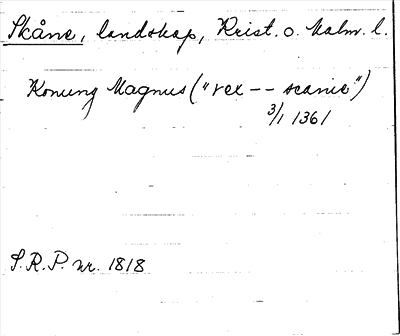 Skåne, landskap, Krist. o. Malm. l.
Konung Magnus ("rex -- scanie")
3/1 1361
S.R.P. nr. 1818